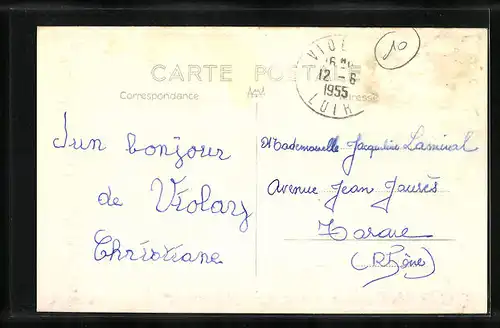 10
VIOL
16 H
12 - 6
1955
LOIR
CARTE POSTALE
Correspondance
Adresse
Un bonjour
de Violay
Christiane
Mademoiselle Jacqueline Lamival
Avenue Jean Jaurès
Tarare
(Rhône)